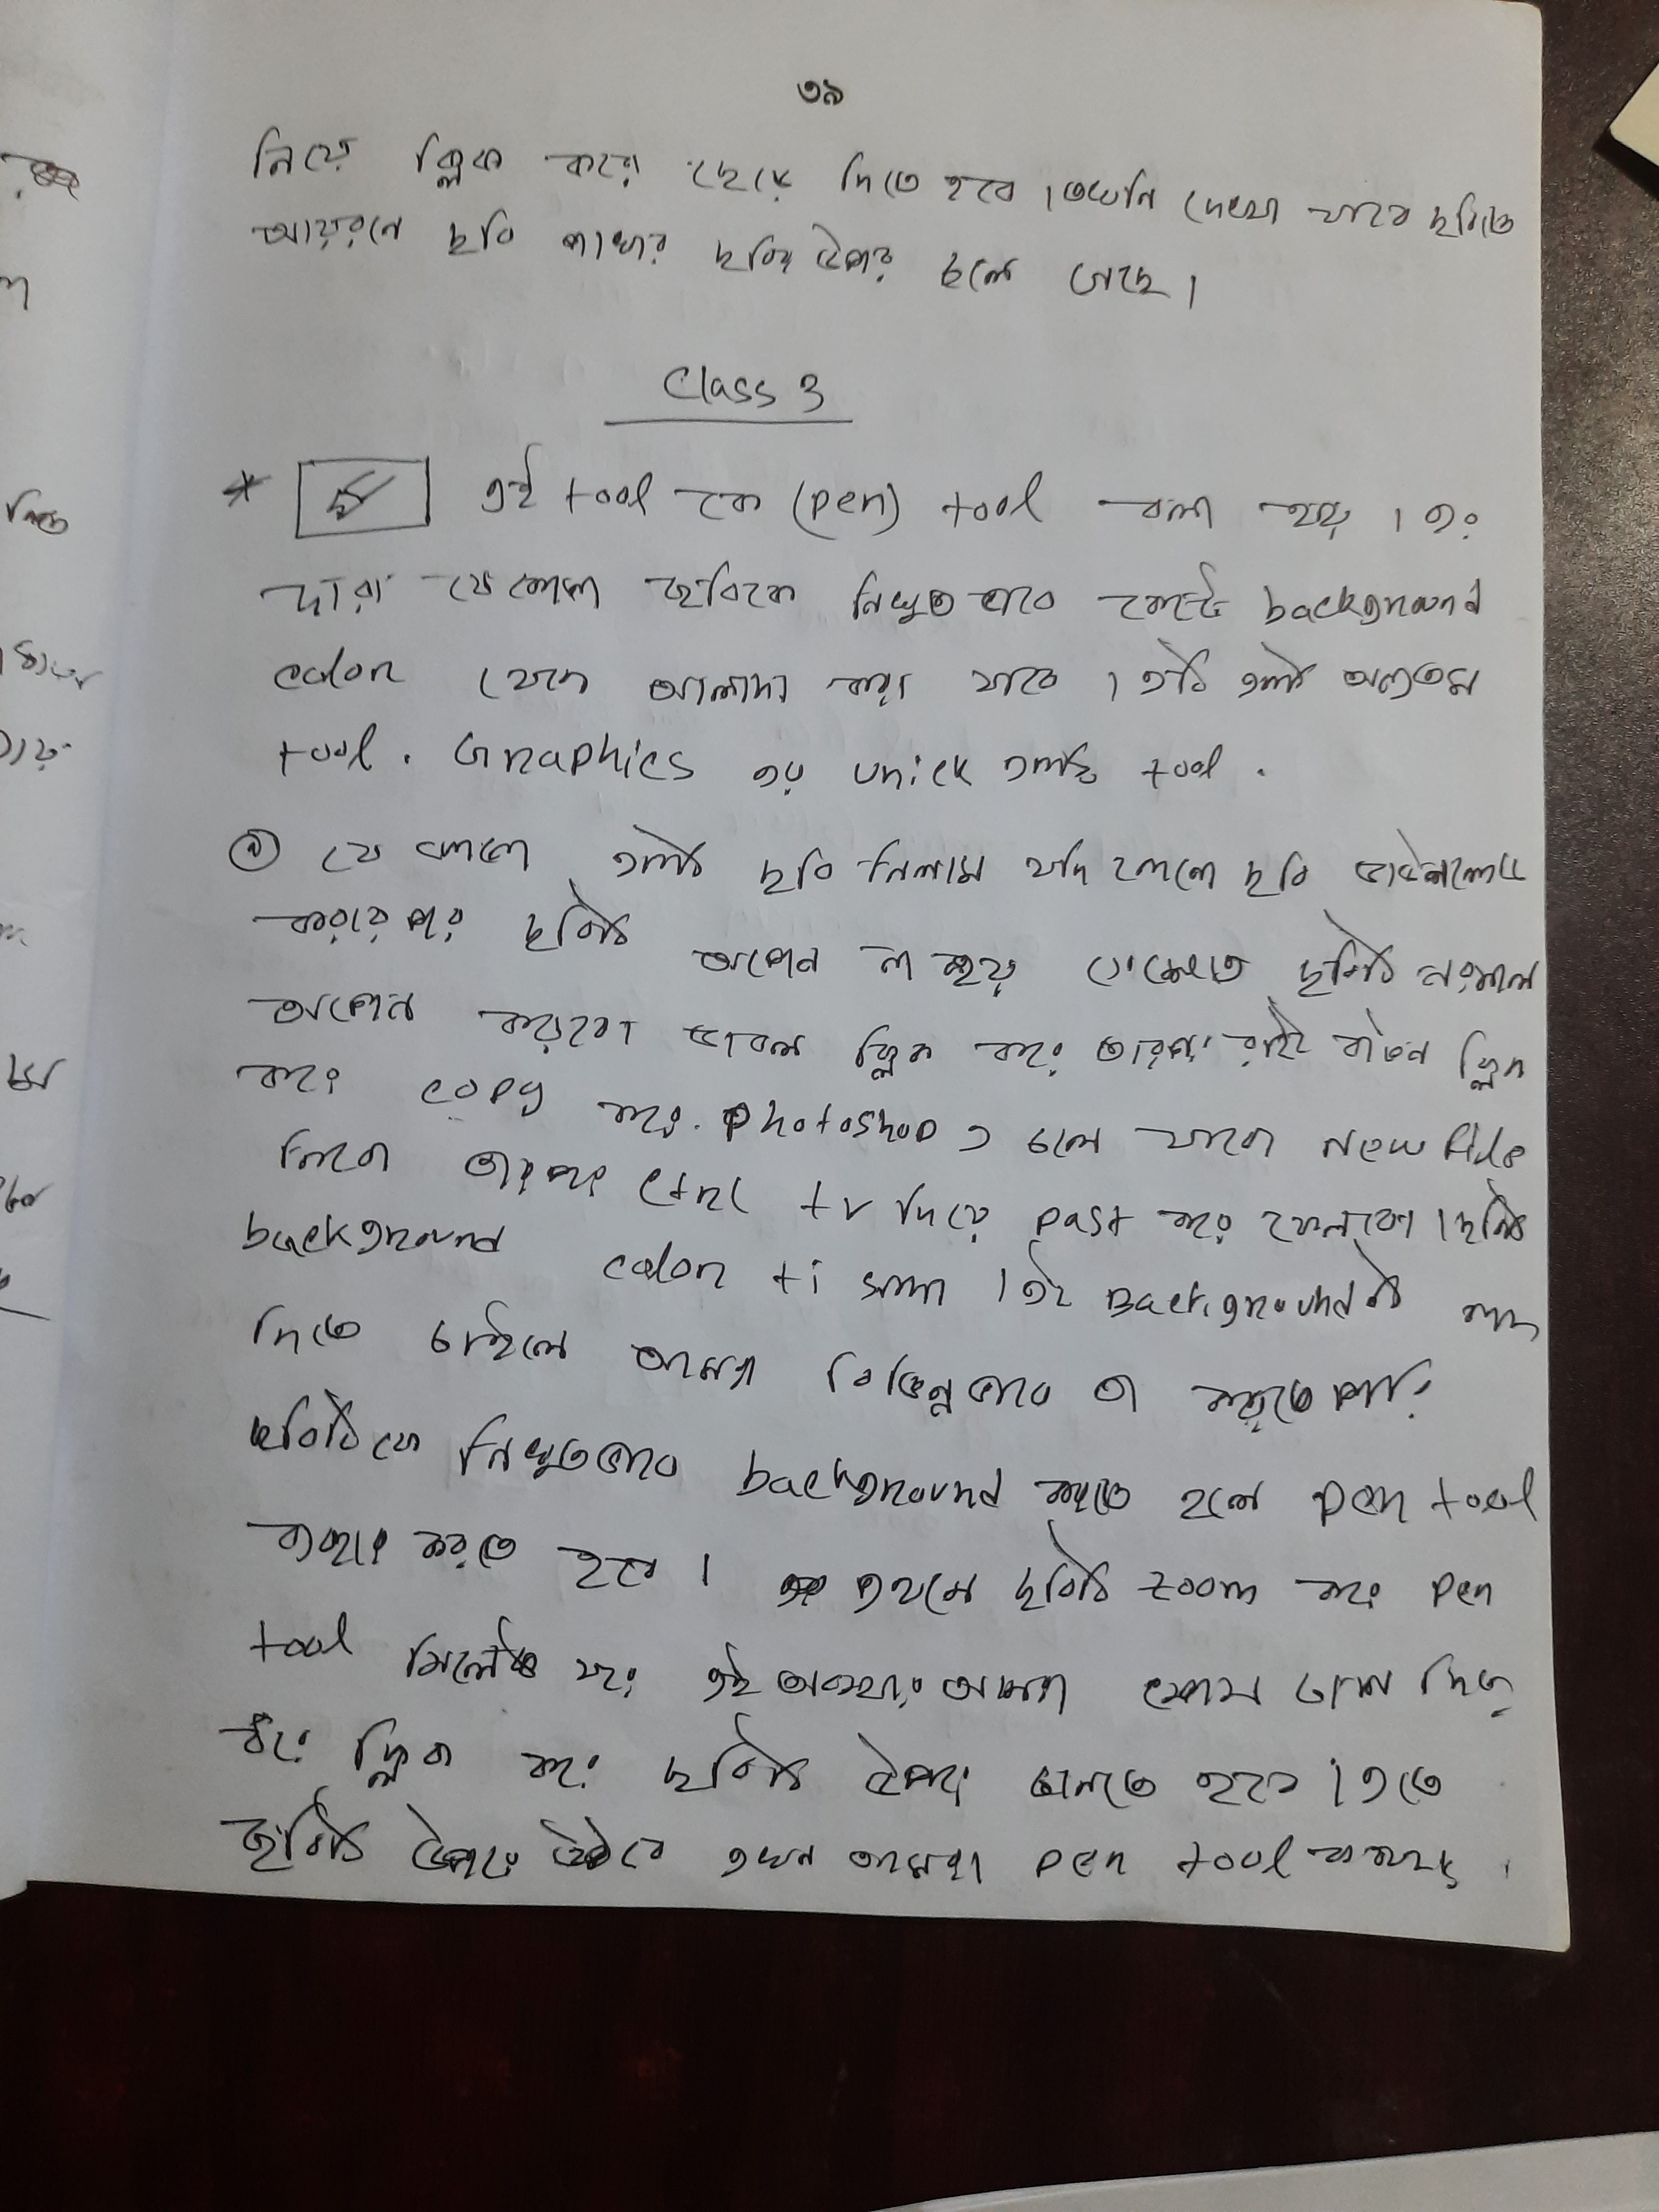 ৩৯
নিয়ে ক্লিক করে ছেড়ে দিতে হবে। তখনি দেখা যাবে ছবিতে
ছবি পাখার ছবির উপর চলে গেছে।
Class 3
* এই tool কে (pen) tool বলা হয়। এর
দ্বারা যেকোন ছবিকে নিখুত ভাবে কেটে background
color থেকে আলাদা করা যাবে। এটি একটি অন্যতম
tool. Graphics এর unick একটি tool.
যে কোনো একটি ছবি নিলাম যদি কোনো ছবি ডাউনলোড
করার পর ছবিটি অপেন না হয় সেক্ষেত্রে ছবিটি নরমাল
অপেন করবো ডাবল ক্লিক করে তারপর রাইট বাটন ক্লিক
করে copy করে. photoshop এ চলে যাবো New file
নিবো তারপর ctrl +v দিয়ে past করে ফেলবো। ছবিটি
background color ti সাদা। এই Background টি বাদ
দিতে চাইলে আমরা বিভিন্নভাবে তা করতে পারি
ছবিটিকে নিখুতভাবে background করতে হলে pen tool
ব্যবহার করতে হবে। প্রথমে ছবিটি zoom করে pen
tool সিলেক্ট করে এই অবস্থায় আমরা
ক্লিক করে ছবিটি উপরে আনতে হবে। এতে
ছবিটি উপরে উঠবে এখন আমরা pen tool